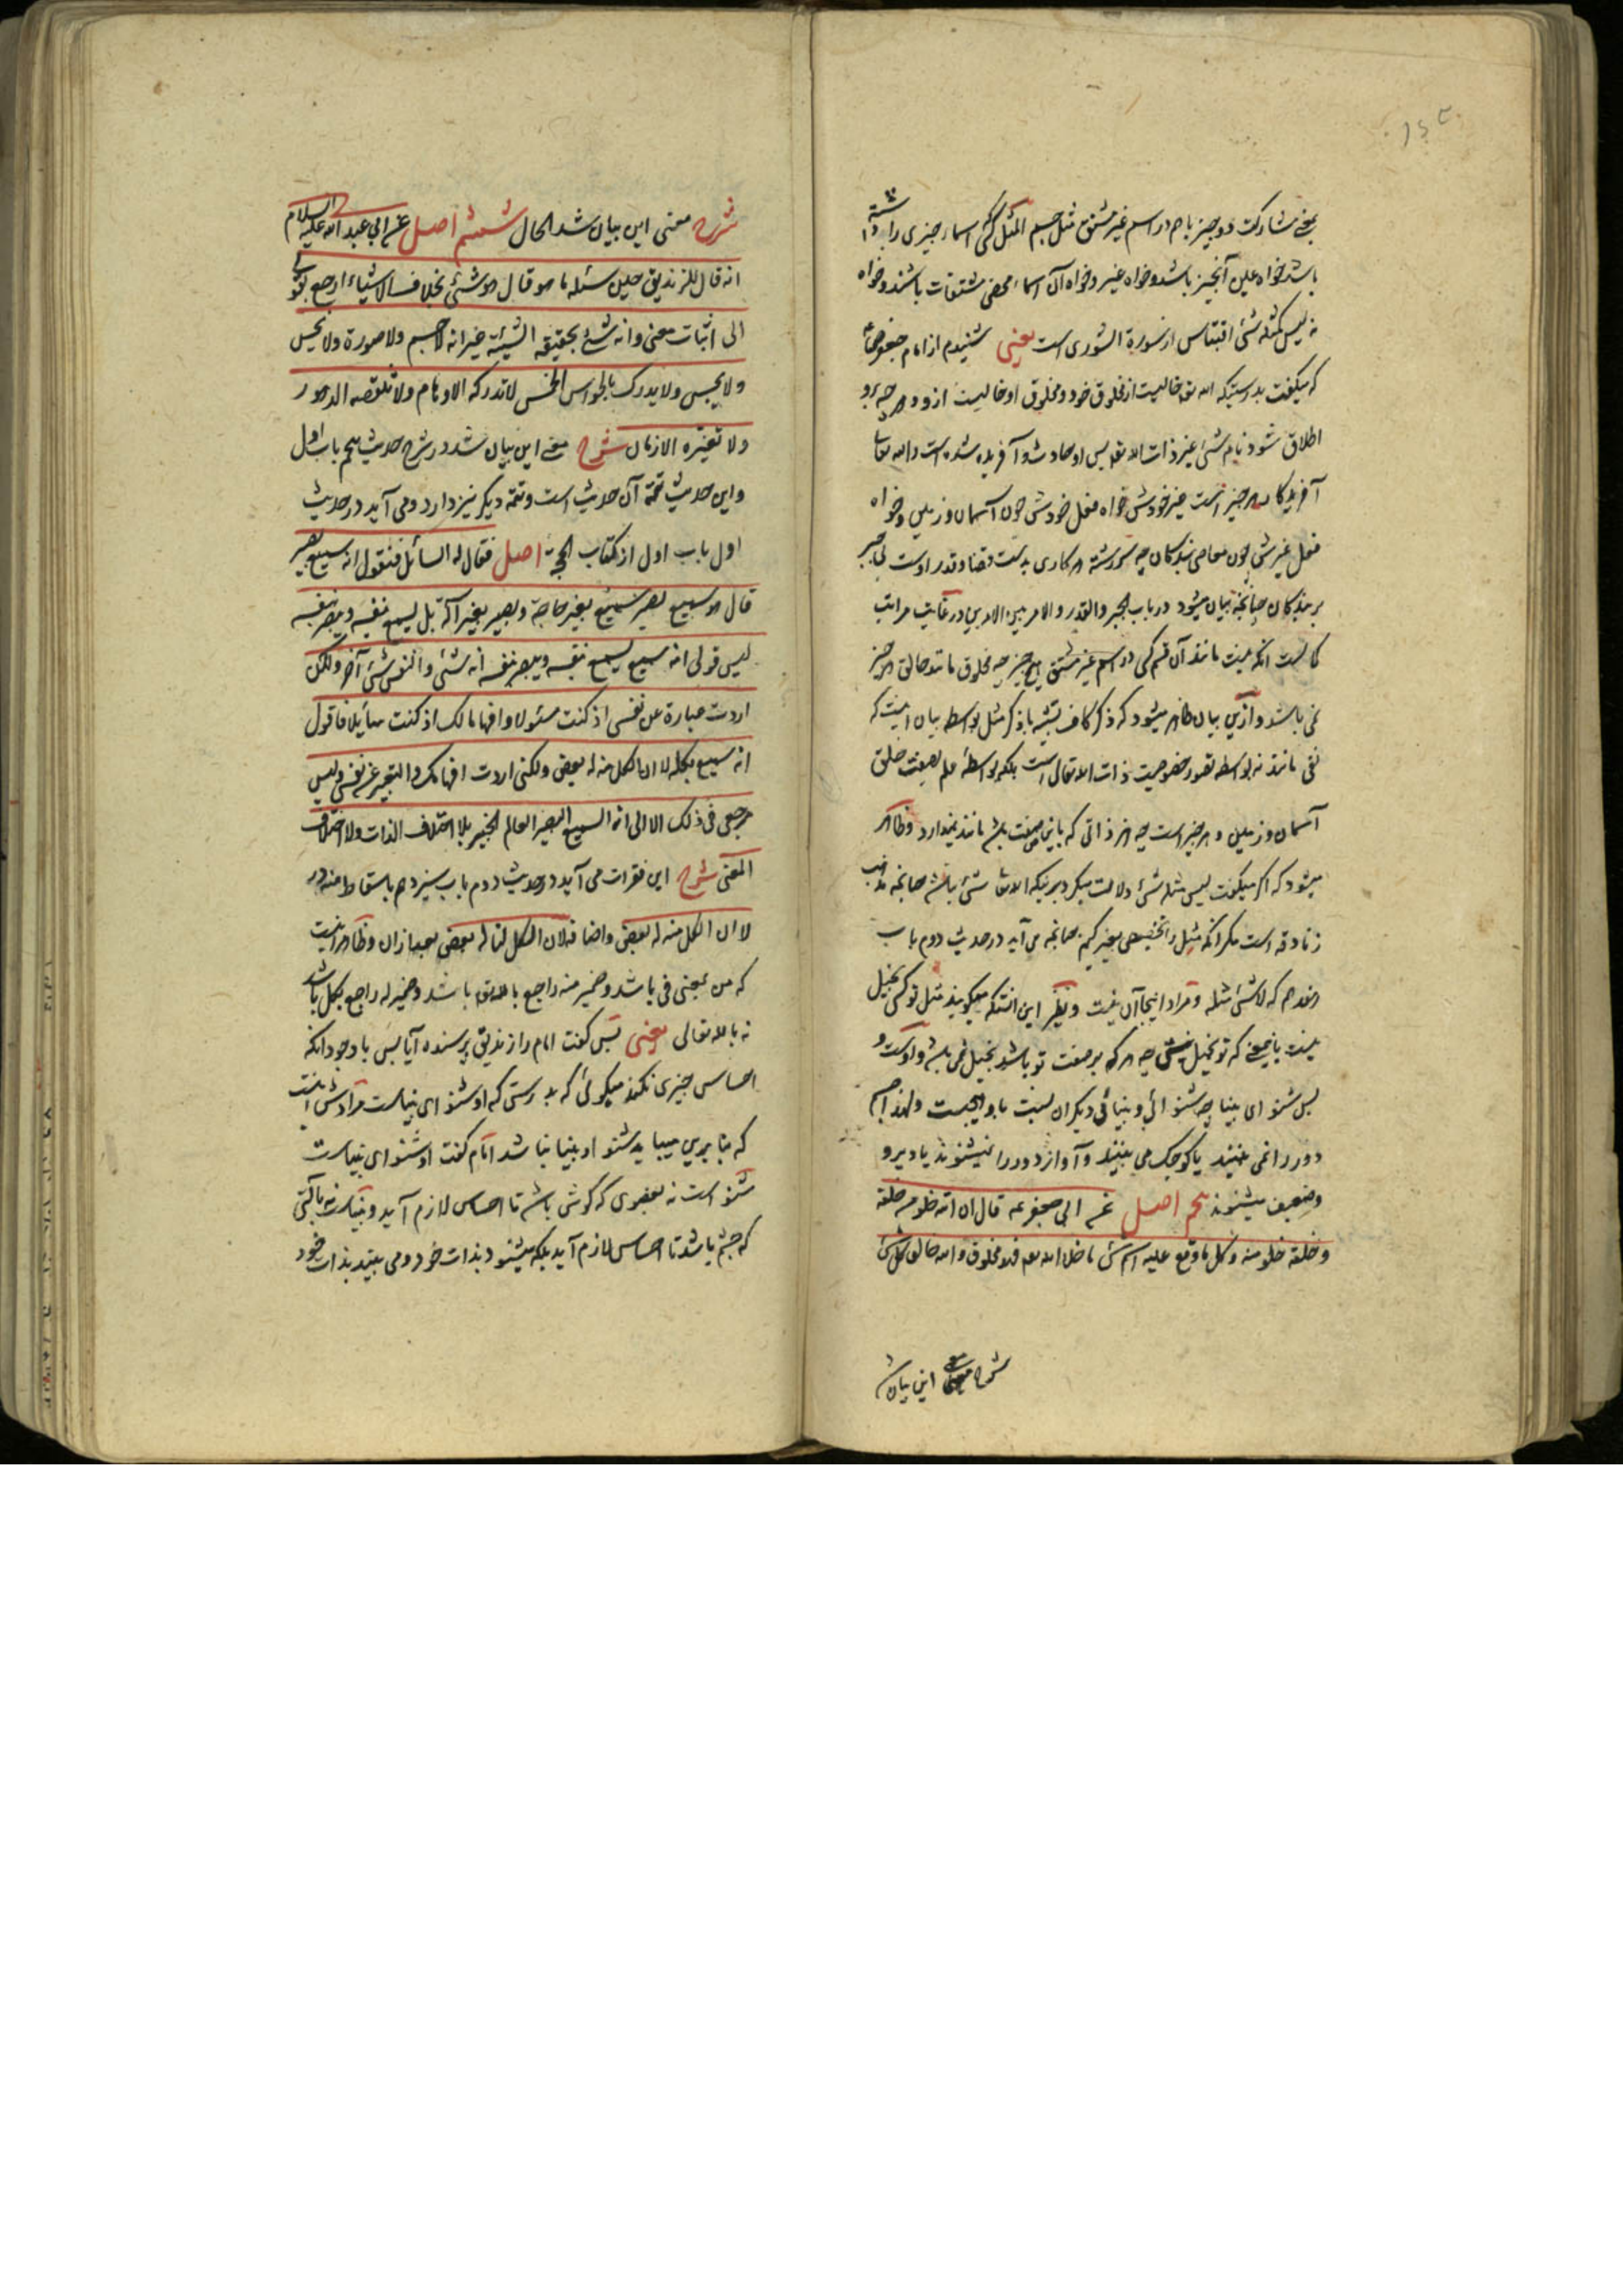 یعنی مشارکت دو چیز با هم در اسم غیر مشتق مثل جسم المثل کسی که اسماء چیزی را داشته
باشد خواه عین آنچیز باشد و خواه غیر و خواه آن اسماء محض مشتقات باشند و خواه
نه لیس کمثله شئ اقتباس از سورة الشوری است یعنی شنیدم از امام جعفر صادق
که میگفت بدرستیکه الله تع خالیست از مخلوق خود و مخلوق او خالیست ازو و هر چه برو
اطلاق شود نام شئ غیر ذات الله تع پس او حادث و آفریده شده است و الله تعالی
آفریدگار هر چیز است غیر خودش خواه فعل خودش چون آسمان و زمین و خواه
فعل غیرش چون معاصی بندگان چه سررشته هر کاری بدست قضا و قدر اوست بی جبر
بر بندگان چنانچه بیان میشود در باب الجبر و القدر و الامر بین الامرین در غایت مراتب
کمالست آنکه نیست مانند آن قسم کسی در اسم غیر مشتق هیچ چیز چه مخلوق مانند خالق هر چیز
نمی باشد و ازین بیان ظاهر میشود که ذکر کاف تشبیه با ذکر مثل بواسطه بیان اینست که
نفی مانند نه بواسطه تصور خصوصیت ذات الله تعالی است بلکه بواسطه علم بصفت خلق
آسمان و زمین و هر چیز است چه هر ذاتی که باین صفت باشد مانند ندارد و ظاهر
میشود که اگر میگفت لیس مثله شئ دلالت میکرد بر اینکه الله تعالی شئ باشد چنانچه مذهب
زنادقه است مگر آنکه مثل را تخصیصی بغیر کنیم چنانچه می آید در حدیث دوم باب
هفدهم که لا شئ مثله و مراد اینجا آن نیست و نظیر این آنستکه میگویند مثل تو کسی بخیل
نیست باین معنی که تو بخیل نیستی چه هر که بر صفت تو باشد بخیل نمی باشد و اوست و
بس شنوای بینا چه شنوائی و بینائی دیگران نسبت باو هیچست و لهذا جسم
دور را نمی بینند یا کوچک می بینند و آواز دور را نمیشنوند یا دیر و
ضعیف میشنوند پنجم اصل عن ابی جعفر عه قال ان الله خلو من خلقه
و خلقه خلو منه و کل ما وقع علیه اسم شئ ما خلا الله تع فهو مخلوق و الله خالق کل شئ
شرح معنی این بیان شد
شرح معنی این بیان شد الحال ششم اصل عن ابی عبد الله علیه السلام
انه قال للزندیق حین سئله ما هو قال هو شئ بخلاف الاشیاء ارجع بقولی
الی اثبات معنی و انه شئ بحقیقة الشیئیة غیر انه لا جسم ولا صورة ولا یحس
ولا یجس ولا یدرک بالحواس الخمس لا تدرکه الاوهام ولا تنقصه الدهور
ولا تغیره الازمان شرح معنی این بیان شد در شرح حدیث پنجم باب اول
و این حدیث تتمه آن حدیث است و تتمه دیگر نیز دارد و می آید در حدیث
اول باب اول از کتاب الحجة اصل فقال له السائل فنقول انه سمیع بصیر
قال هو سمیع بصیر سمیع بغیر جارحة و بصیر بغیر آلة بل یسمع بنفسه و یبصر بنفسه
لیس قولی انه سمیع یسمع بنفسه و یبصر بنفسه انه شئ و النفس شئ آخر ولکن
اردت عبارة عن نفسی اذ کنت مسئولا و افهاما لک اذ کنت سائلا فاقول
انه سمیع بکله لا ان الکل منه له بعض ولکنی اردت افهامک و التعبیر عن نفسی و لیس
مرجعی فی ذلک الا الی انه السمیع البصیر العالم الخبیر بلا اختلاف الذات ولا اختلاف
المعنی شرح این فقرات می آید در حدیث دوم باب سیزدهم باسقاط منه در
لا ان الکل منه له بعض و اضافه لان الکل لنا له بعض بعد ازان و ظاهر اینست
که من بمعنی فی باشد و ضمیر منه راجع بالله تع باشد و ضمیر له راجع بکل باشد
نه بالله تعالی یعنی پس گفت امام را زندیق پرسنده آیا پس با وجود آنکه
احساس چیزی نکند میگوئی که بدرستی که او شنوای بیناست مرادش اینست
که بنابرین میباید شنوا و بینا نباشد امام گفت او شنوای بیناست
شنواست نه بعضوی که گوش باشد تا احساس لازم آید و بیناست نه بآلتی
که چشم باشد تا احساس لازم آید بلکه میشنود بذات خود و می بیند بذات خود